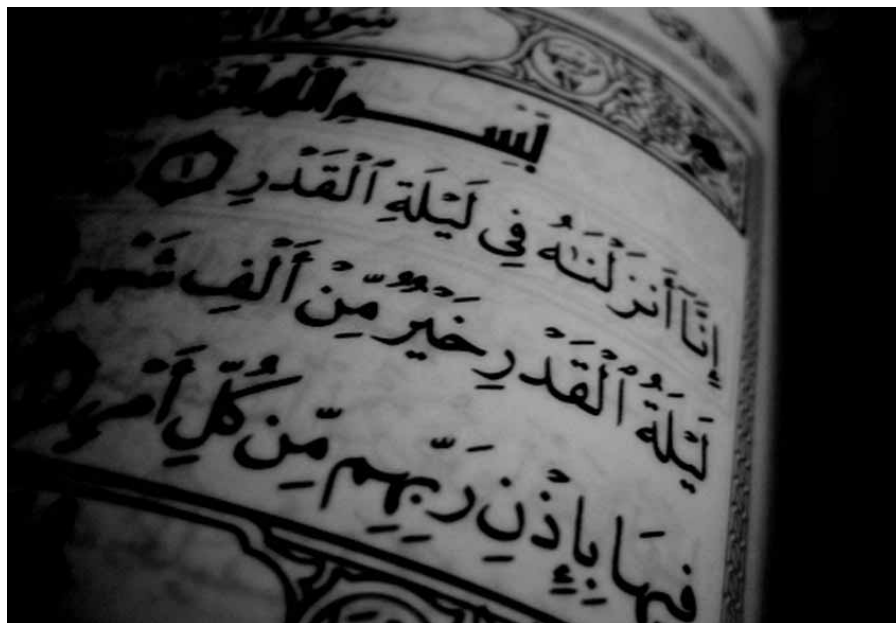 سورة
بِسْمِ ٱللَّهِ
إِنَّآ أَنزَلْنَٰهُ فِى لَيْلَةِ ٱلْقَدْرِ ١
لَيْلَةُ ٱلْقَدْرِ خَيْرٌ مِّنْ أَلْفِ شَهْرٍ
فِيهَا بِإِذْنِ رَبِّهِم مِّن كُلِّ أَمْرٍ